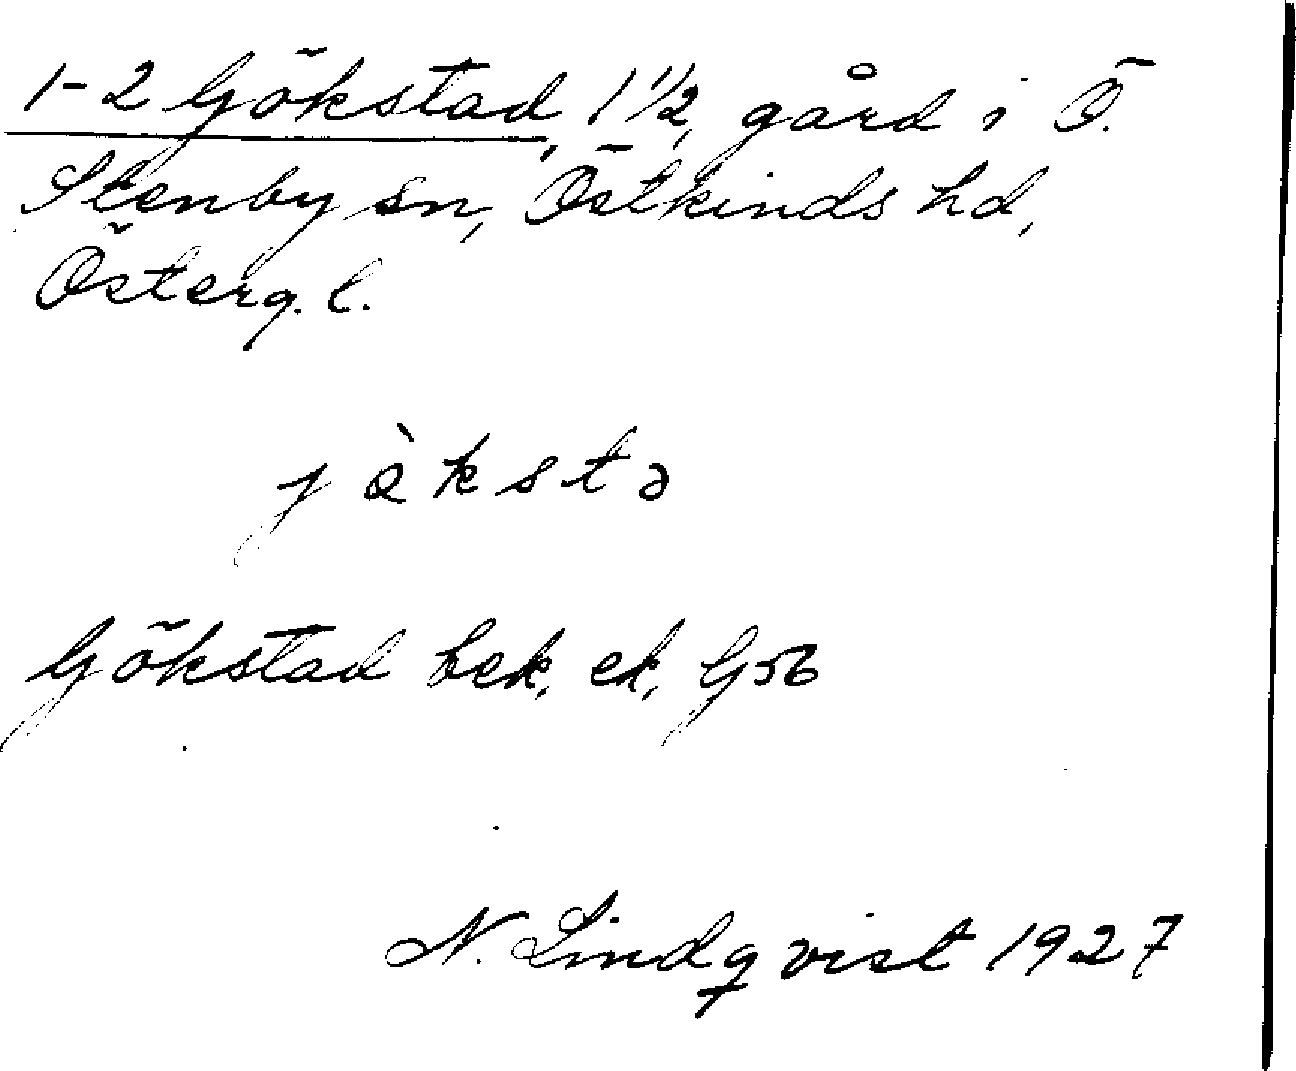 1-2 Gökstad, 1 1/2, gård i Ö.
Stenby sn, Östkinds hd,
Österg. l.
j ò̀ k s t ə
Gökstad bek. ek, G56
N. Lindqvist 1927